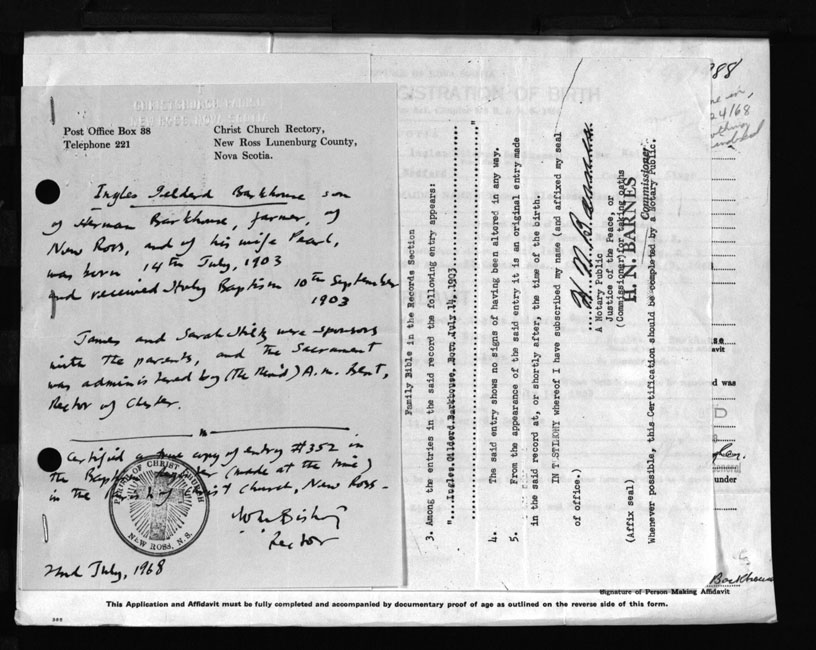 CHRIST CHURCH
NEW ROSS NOVA SCOTIA
Post Office Box 38
Telephone 221
Christ Church Rectory,
New Ross Lunenburg County,
Nova Scotia.
Ingles Gelderd Barkhouse son
of Herman Barkhouse, farmer, of
New Ross, and of his wife Pearl,
was born 14th July, 1903
and received Holy Baptism 10th September
1903
James and Sarah Hiltz were sponsors
with the parents, and the Sacrament
was administered by (the Rev'd) A. M. Bent,
Rector of Chester.
Certified a true copy of entry #352 in
the (made at the time)
in the Christ Church, New Ross -
Rector
2nd July, 1968
PARISH OF CHRIST CHURCH
NEW ROSS, N.S.
Family Bible in the Records Section
3. Among the entries in the said record the following entry appears:
"....Ingles.Gilderd.Barkhouse, Born July.14, 1903
"
4. The said entry shows no signs of having been altered in any way.
5. From the appearance of the said entry it is an original entry made
in the said record at, or shortly after, the time of the birth.
IN TESTIMONY whereof I have subscribed my name (and affixed my seal
of office.)
H. N. Barnes
A Notary Public
Justice of the Peace, or
(Commissioner) for taking oaths
H. N. BARNES
Commissioner
(Affix seal)
Whenever possible, this Certification should be completed by a Notary Public.
REGISTRATION OF BIRTH
988
24/68
se
avit
d was
D
under
Barkhouse
Signature of Person Making Affidavit
This Application and Affidavit must be fully completed and accompanied by documentary proof of age as outlined on the reverse side of this form.